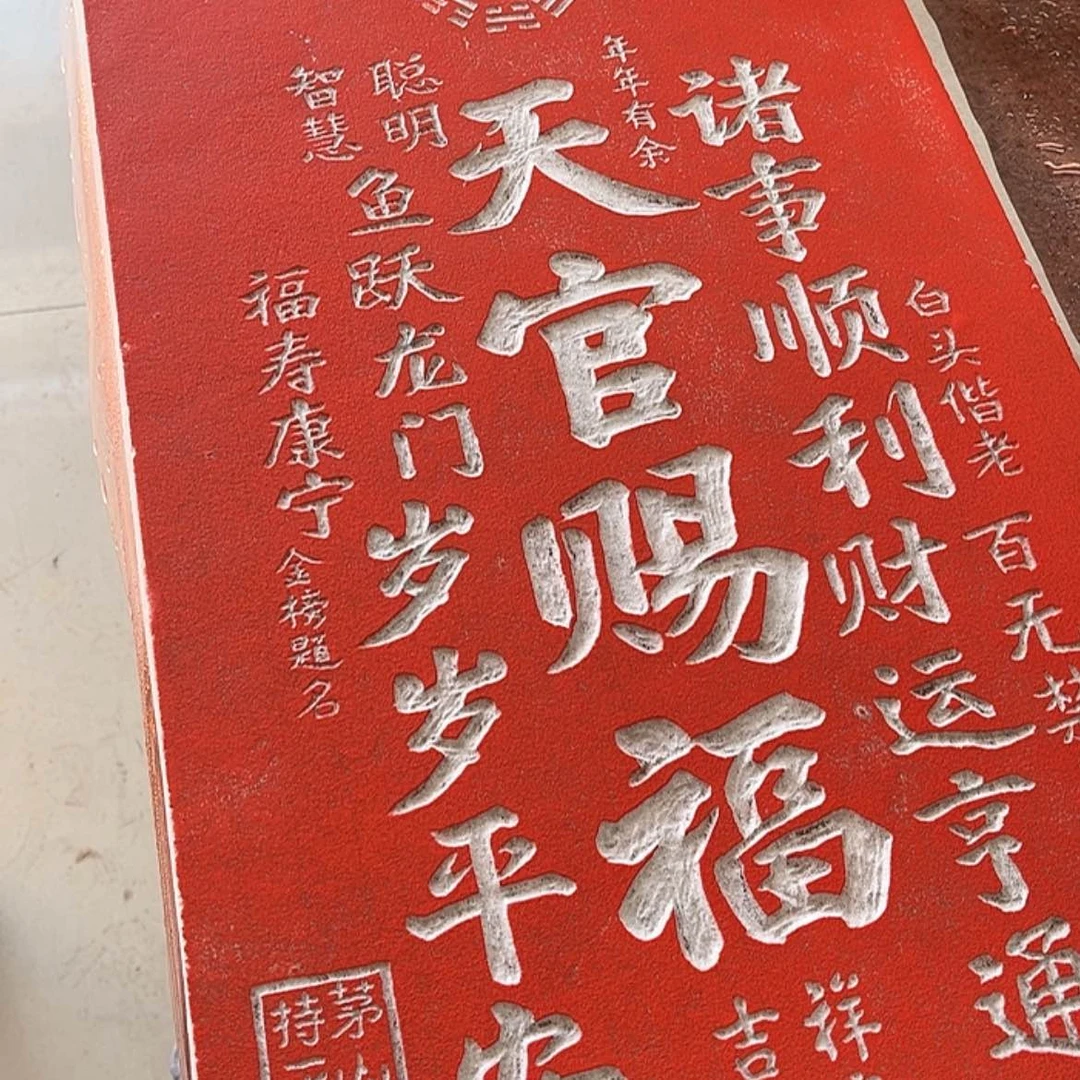 白头偕老
百无禁
诸事顺利财运亨通
年年有余
天官赐福
吉祥
聪明
智慧
鱼跃龙门岁岁平安
福寿康宁
金榜题名
茅山
持